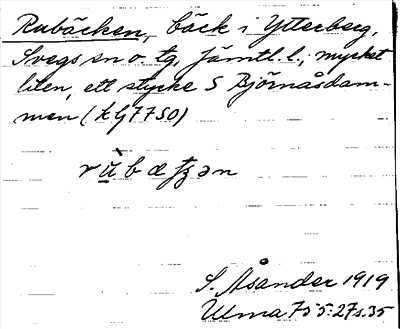 Rubäcken, bäck i Ytterberg,
Svegs sn o. tg, Jämtl. l.; mycket
liten, ett stycke S Björnåsdam-
men (kG7750)
S. Åsander 1919
Ulma 75 5:27 s. 35